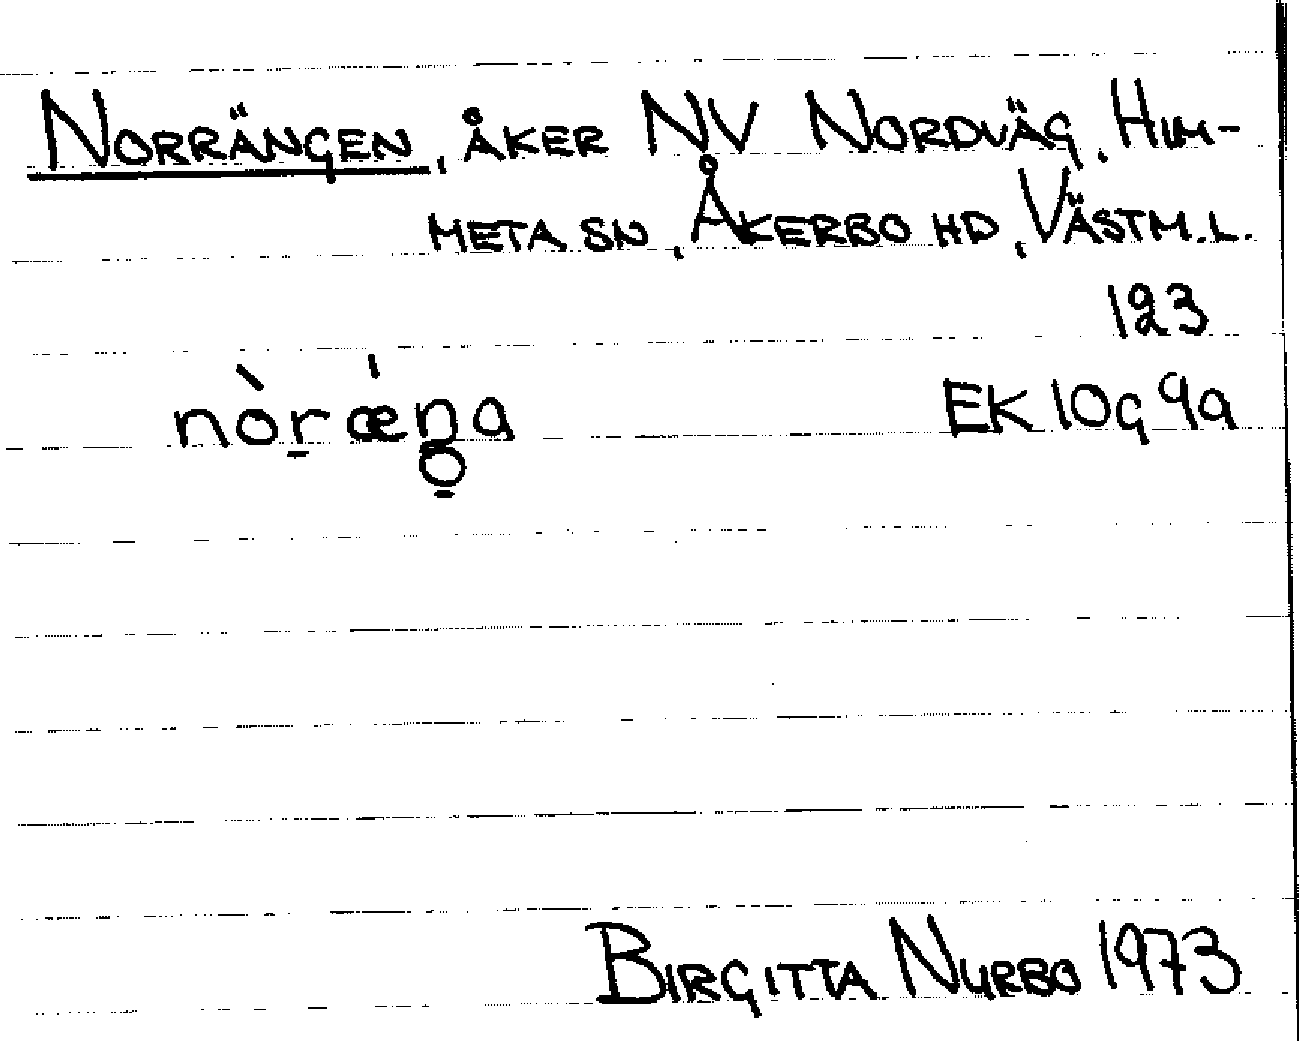 NORRÄNGEN, ÅKER NV NORDVÄG, HUM-
META SN, ÅKERBO HD, VÄSTM.L.
123
nòr̠ǽŋ̠a EK 10G 9a
BIRGITTA NYRBO 1973